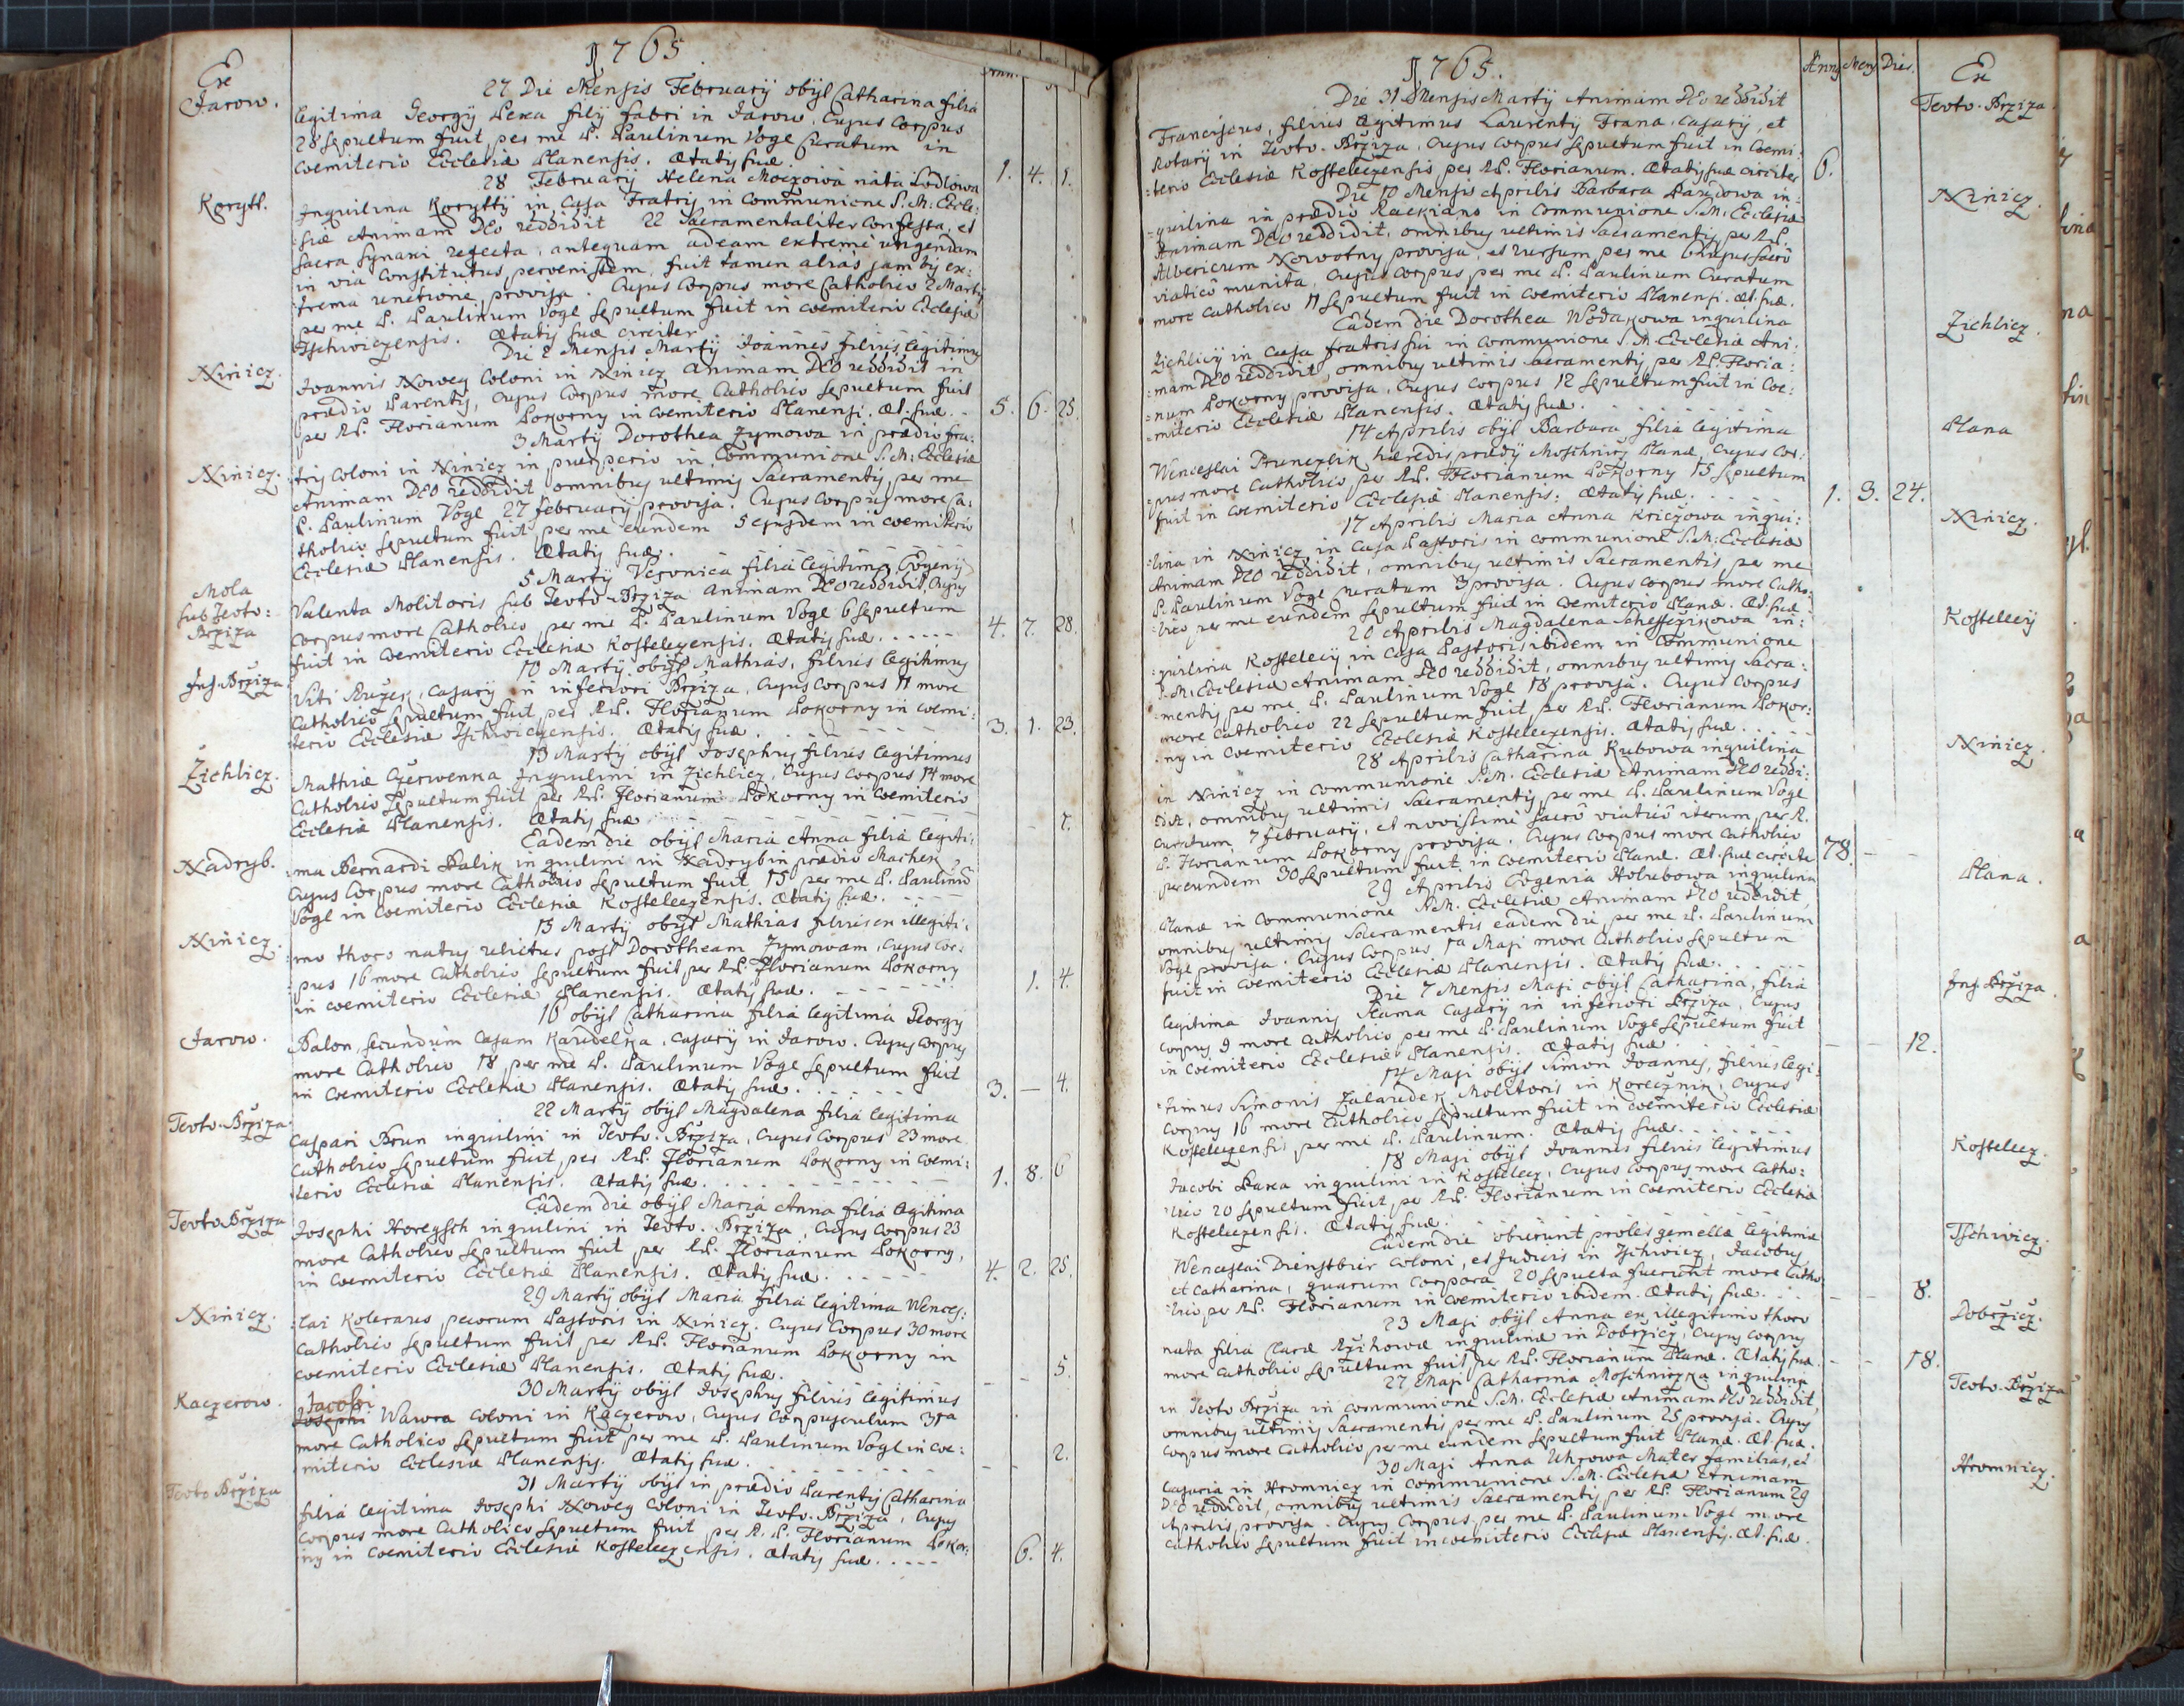 1765.
Ex
Jarow.
27 Die Mensis Februarij obijt Catharina filia
legitima Georgij Pexa filij fabri in Jarow, Cujus Corpus
28 sepultum fuit per me P. Paulinum Vogl Curatum in
Coemiterio Ecclesiæ Planensis. Ætatis suæ. 1. 4. 1.
Korytt.
28 Februarij Helena Moczowa nata
Inquilina Koryttij in Casa Fratris in Communione S. M: Eccle:
siæ Animam DEO reddidit 22 Sacramentaliter Confessa, et
Sacra Synaxi refecta, antequam ad eam extreme ungendam
in via Constitutus pervenissem, fuit tamen alias jam bis ex:
trema unctione provisa. Cujus Corpus more Catholico 2 Martij
per me P. Paulinum Vogl sepultum fuit in coemiterio Ecclesiæ
Tschwiczensis. Ætatis suæ circiter
Xinicz.
Die 2 Mensis Martij Joannes filius legitimus
Joannis Nowey Coloni in Xinicz Animam DEO reddidit in
prædio Parentis, Cujus Corpus more Catholico sepultum fuit
per R.P. Florianum Pokorny in Coemiterio Planensi. Æt. suæ. 5. 6. 25.
Xinicz.
3 Martij Dorothea Zymowa in prædio fra:
tris Coloni in Xinicz in puerperio in Communione S. M: Ecclesiæ
Animam DEO reddidit omnibus ultimis Sacramentis, per me
P. Paulinum Vogl 27 februarij provisa. Cujus Corpus more Ca:
tholico sepultum fuit per me eundem 5 ejusdem in coemiterio
Ecclesiæ Planensis. Ætatis suæ.
Mola
sub Teuto:
Brziza
5 Martij Veronica filia legitima Eugenij
Valenta Molitoris sub Teuto-Brziza Animam DEO reddidit, Cujus
Corpus more Catholico per me P. Paulinum Vogl 6 sepultum
fuit in Coemiterio Ecclesiæ Kostelezensis. Ætatis suæ. 4. 7. 28.
Inf. Brziza
10 Martij obijt Mathias, filius legitimus
Viti Ruzek, Casarij in inferiori Brziza, Cujus Corpus 11 more
Catholico sepultum fuit per R.P. Florianum Pokorny in Coemi:
terio Ecclesiæ Tschwiczensis. Ætatis suæ. 3. 1. 23.
Zichlicz.
13 Martij obijt Josephus filius legitimus
Mathiæ Czerwenka Inquilini in Zichlicz, Cujus Corpus 14 more
Catholico sepultum fuit per R.P. Florianum Pokorny in Coemiterio
Ecclesiæ Planensis. Ætatis suæ
Nadryb.
Eadem die obijt Maria Anna filia legiti:
ma Bernardi Palik inquilini in Nadryb in prædio Machek,
Cujus Corpus more Catholico sepultum fuit 15 per me P. Paulinum
Vogl in Coemiterio Ecclesiæ Kostelezensis. Ætatis suæ.
Xinicz.
15 Martij obijt Mathias filius ex illegiti:
mo thoro natus relictus post Dorotheam Zymowam, Cujus Cor:
pus 16 more Catholico sepultum fuit per R.P. Florianum Pokorny
in coemiterio Ecclesiæ Planensis. Ætatis suæ. 1. 4.
Jarow.
16 obijt Catharina filia legitima Georgij
Balon, secundum Casam Karudelka, Casarij in Jarow. Cujus Corpus
more Catholico 18 per me P. Paulinum Vogl sepultum fuit
in Coemiterio Ecclesiæ Planensis. Ætatis suæ. 3. — 4.
Teuto-Brziza
22 Martij obijt Magdalena filia legitima
Caspari Brun inquilini in Teuto. Brziza, Cujus Corpus 23 more
Catholico sepultum fuit per R.P. Florianum Pokorny in Coemi:
terio Ecclesiæ Planensis. Ætatis suæ. 1. 8. 6
Teuto Brziza
Eadem die obijt Maria Anna filia legitima
Josephi Horegsch inquilini in Teuto. Brziza, Cujus Corpus 23
more Catholico sepultum fuit per R.P. Florianum Pokorny,
in Coemiterio Ecclesiæ Planensis. Ætatis suæ. 4. 2. 25.
Xinicz.
29 Martij obijt Maria filia legitima Wences:
lai Kolerarus pecorum Pastoris in Xinicz. Cujus Corpus 30 more
Catholico sepultum fuit per R.P. Florianum Pokorny in
coemiterio Ecclesiæ Planensis. Ætatis suæ. 5.
Kaczerow.
30 Martij obijt Josephus filius legitimus
Jacobi
Josephi Wawra Coloni in Kaczerow, Cujus Corpusculum 31ma
more Catholico sepultum fuit per me P. Paulinum Vogl in Coe:
miterio Ecclesiæ Planensis. Ætatis suæ. 2.
Teuto Brziza
31 Martij obijt in prædio Parentis Catharina
filia legitima Josephi Nowey Coloni in Teuto. Brziza, Cujus
Corpus more Catholico sepultum fuit per R.P. Florianum Pokor:
ny in Coemiterio Ecclesiæ Kostelezensis. Ætatis suæ. 6. 4.
1765.
Anny Mens Dies.
Ex
Teuto-Brziza
Die 31 Mensis Martij Animam DEO reddidit
Franciscus, filius legitimus Laurentij Frana, Casarij, et
Rotarij in Teuto-Brziza, Cujus Corpus sepultum fuit in Coemi:
terio Ecclesiæ Kostelezensis per R.P. Florianum. Ætatis suæ circiter 6.
Xinicz.
Die 10 Mensis Aprilis Barbara in:
quilina in prædio Raekiano in Communione S. M. Ecclesiæ
Animam DEO reddidit, omnibus ultimis Sacramentis per R.P.
Albericum Nowotny provisa, et rursum per me Curatum sacro
viatico munita, Cujus Corpus per me P. Paulinum Curatum
more Catholico 11 sepultum fuit in Coemiterio Planensi. Æt. suæ.
Zichlicz.
Eadem die Dorothea Wodakowa inquilina
Zichlicij in Casa fratris sui in Communione S. M. Ecclesiæ Ani:
mam DEO reddidit, omnibus ultimis Sacramentis per R.P. Floria:
num Pokorny provisa, Cujus Corpus 12 sepultum fuit in Coe:
miterio Ecclesiæ Planensis. Ætatis suæ.
Plana
14 Aprilis obijt Barbara filia legitima
Wenceslai Prunczlik hæredis prædij Moschnicz Planæ, Cujus Cor:
pus more Catholico per R.P. Florianum Pokorny 15 sepultum
fuit in coemiterio Ecclesiæ Planensis: Ætatis suæ. 1. 3. 24.
Xinicz.
17 Aprilis Maria Anna Kriczowa inqui:
lina in Xinicz in Casa Pastoris in communione S. M: Ecclesiæ
Animam DEO reddidit, omnibus ultimis Sacramentis per me
P. Paulinum Vogl Curatum 3 provisa. Cujus Corpus more Catho:
lico per me eundem sepultum fuit in Coemiterio Planæ. Æt. suæ
Kostelecij
20 Aprilis Magdalena in:
quilina Kostelecij in Casa Pastoris ibidem in Communione
S. M. Ecclesiæ Animam DEO reddidit, omnibus ultimis Sacra:
mentis per me P. Paulinum Vogl 18 provisa. Cujus Corpus
more Catholico 22 sepultum fuit per R.P. Florianum Pokor:
ny in Coemiterio Ecclesiæ Kostelezensis. Ætatis suæ.
Xinicz.
28 Aprilis Catharina Kubowa inquilina
in Xinicz in communione S. M. Ecclesiæ Animam DEO reddi:
dit, omnibus ultimis Sacramentis per me P. Paulinum Vogl
Curatum 7 februarij, et novissime Sacro viatico iterum per R.
P. Florianum Pokorny provisa. Cujus Corpus more Catholico
per eundem 30 sepultum fuit in Coemiterio Planæ. Æt. suæ circite 78. — —
Plana.
29 Aprilis Eugenia Holubowa inquilina
Planæ in Communione S. M. Ecclesiæ Animam DEO reddidit,
omnibus ultimis Sacramentis eadem die per me P. Paulinum
Vogl provisa. Cujus Corpus 1ma Maji more Catholico sepultum
fuit in Coemiterio Ecclesiæ Planensis. Ætatis suæ.
Inf Brziza.
Die 7 Mensis Maji obijt Catharina, filia
legitima Joannis Casarij in inferiori Brziza, Cujus
Corpus 9 more Catholico per me P. Paulinum Vogl sepultum fuit
in Coemiterio Ecclesiæ Planensis. Ætatis suæ. — — 12.
14 Maji obijt Simon Joannes, filius legi:
timus Simonis Zalaudek Molitoris in Korecznik, Cujus
Corpus 16 more Catholico sepultum fuit in coemiterio Ecclesiæ
Kostelezensis per me P. Paulinum. Ætatis suæ.
Kostelecz.
18 Maji obijt Joannes filius legitimus
Jacobi Paxa inquilini in Kostelecz, Cujus Corpus more Catho:
lico 20 sepultum fuit per R.P. Florianum in Coemiterio Ecclesiæ
Kostelezensis. Ætatis suæ.
Tschwicz.
Eadem die obierunt proles gemellæ legitimæ
Wenceslai Dienstbier Coloni, et Judicis in Tschwicz, Jacobus,
et Catharina, quarum Corpora 20 sepulta fuerunt more Catho
lico per R.P. Florianum in Coemiterio ibidem. Ætatis suæ. — — 8.
Dobrzicz.
23 Maji obijt Anna ex illegitimo thoro
nata filia Claræ Rzihowæ inquilinæ in Dobrzicz, Cujus Corpus
more Catholico sepultum fuit per R.P. Florianum Planæ. Ætatis suæ. — — 18.
Teuto-Brziza
27 Maji Catharina Moschniczka inquilina
in Teuto Brziza in communione S. M. Ecclesiæ Animam DEO reddidit,
omnibus ultimis Sacramentis per me P. Paulinum 25 provisa. Cujus
Corpus more Catholico per me eundem sepultum fuit Planæ. Æt. suæ.
Hromnicz.
30 Maji Anna Uhrowa Mater familias, et
Casaria in Hromnicz in communione S. M. Ecclesiæ Animam
DEO reddidit, omnibus ultimis Sacramentis per R.P. Florianum 29
Aprilis provisa. Cujus Corpus per me P. Paulinum Vogl more
Catholico sepultum fuit in coemiterio Ecclesiæ Planensis. Æt. suæ.